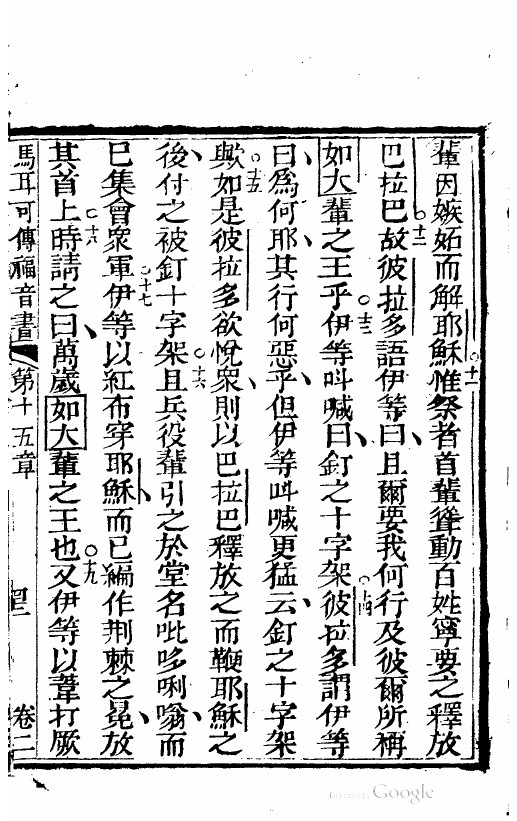 輩因嫉妬而解耶穌○十一惟祭者首輩聳動百姓寧要之釋放
巴拉巴○十二故彼拉多語伊等曰且爾要我何行及彼爾所稱
如大輩之王乎○十三伊等呌喊曰釘之十字架○十四彼拉多謂伊等
曰爲何耶其行何惡乎但伊等呌喊更猛云釘之十字架
歟○十五如是彼拉多欲悅衆則以巴拉巴釋放之而鞭耶穌之
後付之被釘十字架○十六且兵役輩引之於堂名吡哆唎嗡而
已集會衆軍○十七伊等以紅布穿耶穌而已編作荆棘之冕放
其首上○十八時請之曰萬歲如大輩之王也○十九又伊等以葦打厥
馬耳可傳福音書 第十五章 卷二
Digitized by Google